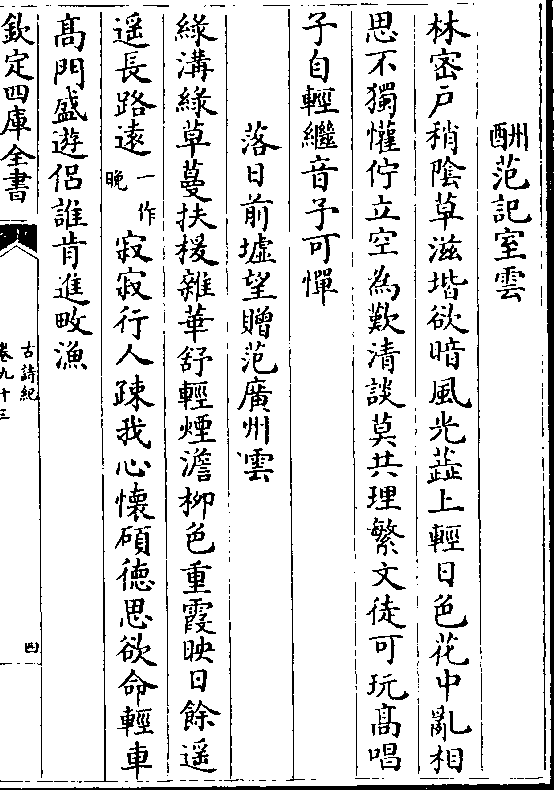 酬范記室雲
林密戶稍隂草滋堦欲暗風光蘂上輕日色花中亂相
思不獨懽佇立空為歎清談莫共理繁文徒可玩髙唱
子自輕繼音予可憚
落日前墟望贈范廣州雲
緑溝緑草蔓扶楥雜華舒輕煙澹柳色重霞映日餘遥
遥長路遠一作晚寂寂行人踈我心懷碩徳思欲命輕車
髙門盛遊侣誰肯進畋漁
欽定四庫全書
古詩紀
卷九十三
四